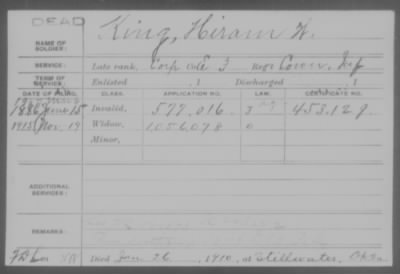 DEAD
King, Hiram W.
NAME OF
SOLDIER:
SERVICE: Late rank, Corp Co. E 3 Reg't Inf
TERM OF
SERVICE: Enlisted , 1 Discharged , 1
DATE OF FILING. CLASS. APPLICATION NO. LAW. CERTIFICATE NO.
1886 June 15 Invalid, 577,016 453,129
1915 Nov 19 Widow, 1056078
Minor,
ADDITIONAL
SERVICES:
REMARKS:
Died Jan 26, 1910, at Stillwater, Okla